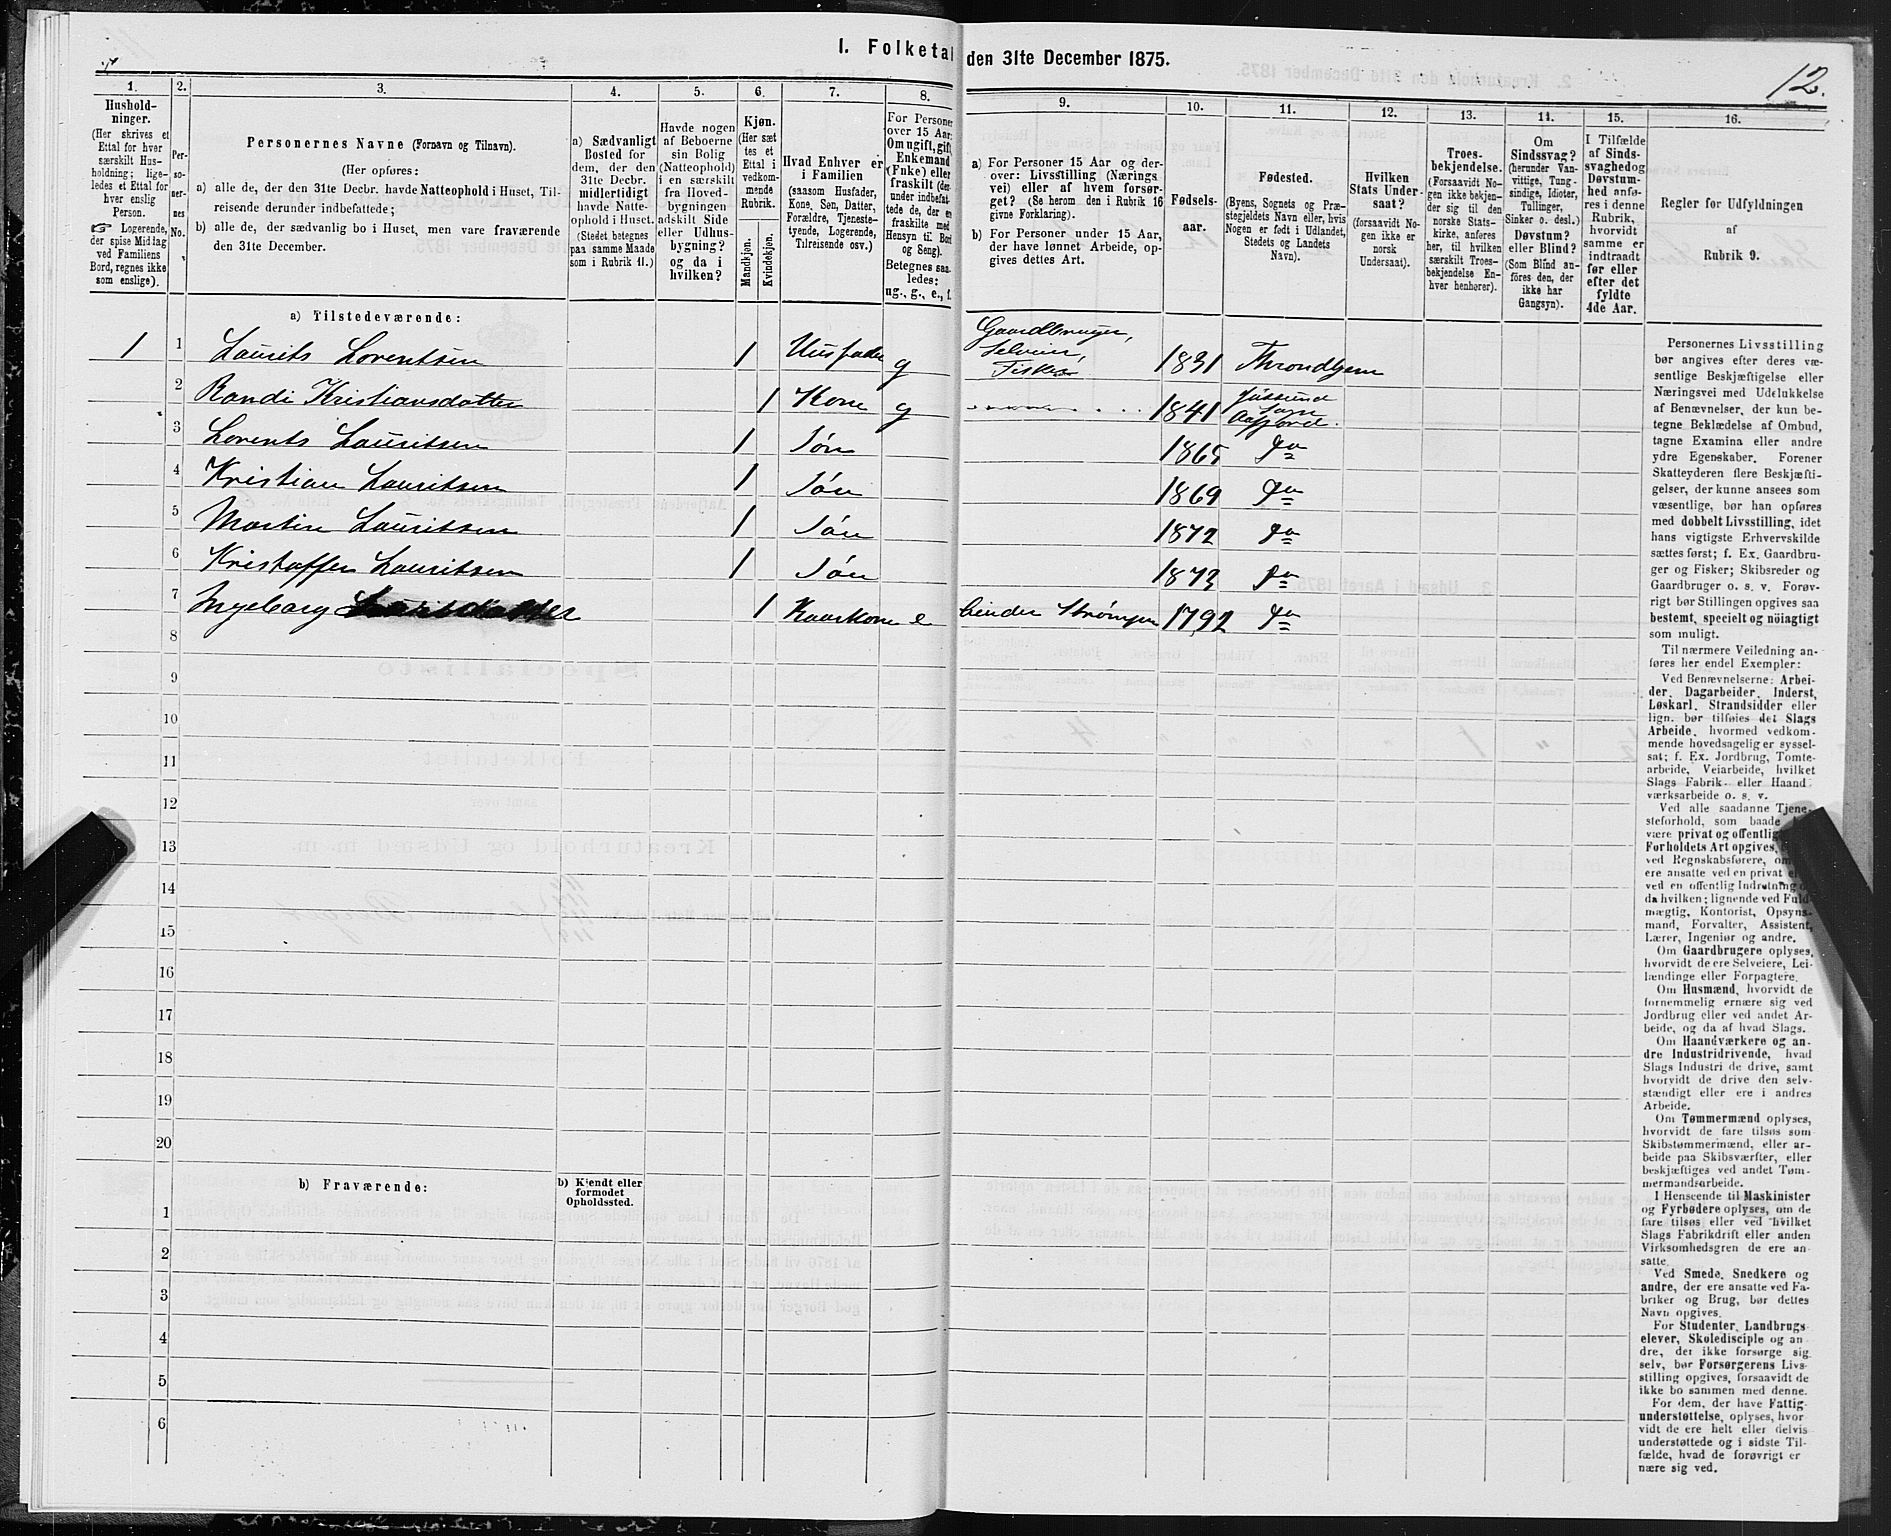 I. Folketal den 31te December 1875.
12.
1.
Hushold-
ninger.
(Her skrives et
Ettal for hver
særskilt Hus-
holdning; lige-
ledes et Ettal for
hver enslig
Person.
☞ Logerende,
der spise Middag
ved Familiens
Bord, regnes ikke
som enslige).
2.
Per-
so-
ner-
nes
No.
3.
Personernes Navne (Fornavn og Tilnavn).
(Her opføres:
a) alle de, der den 31te Decbr. havde Natteophold i Huset, Til-
reisende derunder indbefattede;
b) alle de, der sædvanlig bo i Huset, men vare fraværende
den 31te December.
4.
a) Sædvanligt
Bosted for
dem, der den
31te Decbr.
midlertidigt
havde Natte-
ophold i Huset.
(Stedet betegnes
paa samme Maade
som i Rubrik 11.)
5.
Havde nogen
af Beboerne
sin Bolig
(Natteophold)
i en særskilt
fra Hoved-
bygningen
adskilt Side
eller Udhus-
bygning?
og da i
hvilken?
6.
Kjøn.
(Her sæt
tes et
Ettal i
vedkom-
mende
Rubrik.
Mandkjøn.
Kvindekjøn.
7.
Hvad Enhver er
i Familien
(saasom Husfader,
Kone, Søn, Datter,
Forældre, Tjeneste-
tyende, Logerende,
Tilreisende osv.)
8.
For Personer
over 15 Aar:
Om ugift, gift,
Enkemand
(Enke) eller
fraskilt (der-
under indbefat-
tede de, der en
fraskilte med
Hensyn til Bord
og Seng).
Betegnes saa-
ledes:
ug., g., e., f.
9.
a) For Personer 15 Aar og der-
over: Livsstilling (Nærings
vei) eller af hvem forsør-
get? (Se herom den i Rubrik 16
givne Forklaring).
b) For Personer under 15 Aar,
der have lønnet Arbeide, op-
gives dettes Art.
10.
Fødsels-
aar.
11.
Fødested.
(Byens, Sognets og Præ-
stegjeldets Navn eller, hvis
Nogen er født i Udlandet,
Stedets og Landets
Navn).
12.
Hvilken
Stats Under-
saat?
(forsaavidt No-
gen ikke er
norsk
Undersaat).
13.
Troes-
bekjendelse.
(Forsaavidt No-
gen ikke bekjen-
der sig til den
norske Stats-
kirke, anføres
her, til hvilken
særskilt Troes-
bekjendelse En-
hver henhører).
14.
Om
Sindssvag?
(herunder Van-
vittige, Tung-
sindige, Idioter,
Tullinger,
Sinker o. desl.)
Døvstum?
eller Blind?
(Som Blind an-
føres den, der
ikke har
Gangsyn).
15.
I Tilfælde
af Sinds-
svaghed og
Døvstum-
hed anfø-
res i denne
Rubrik,
hvorvidt
samme er
indtraadt
før eller
efter det
fyldte
4de Aar.
16.
Regler for Udfyldningen
af
Rubrik 9.
a) Tilstedeværende:
1 1 Laurits Lorentsen 1 Husfader g Gaardbruger, Selveier, Fisker 1831 Throndhjem
2 Randi Kristiansdatter 1 Kone g 1841 Jøssund Sogn Aafjord.
3 Lorents Lauritsen 1 Søn 1865 Do
4 Kristian Lauritsen 1 Søn 1869 Do
5 Martin Lauritsen 1 Søn 1872 Do
6 Kristoffer Lauritsen 1 Søn 1873 Do
7 Ingeborg 1 Kaarkone e binder Strømper 1792 Do
8
9
10
11
12
13
14
15
16
17
18
19
20
b) Fraværende:
b) Kjendt eller
formodet
Opholdssted.
1
2
3
4
5
6
Personernes Livsstilling
bør angives efter deres væ-
sentlige Beskjæftigelse eller
Næringsvei med Udelukkelse
af Benævnelser, der kun be-
tegne Beklædelse af Ombud,
tagne Examina eller andre
ydre Egenskaber. Forener
Skatteyderen flere Beskjæfti-
gelser, der kunne ansees som
væsentlige, bør han opføres
med dobbelt Livsstilling, idet
hans vigtigste Erhvervskilde
sættes først; f. Ex. Gaardbru-
ger og Fisker; Skibsreder og
Gaardbruger o. s. v. Forøv-
rigt bør Stillingen opgives saa
bestemt, specielt og nøiagtigt
som muligt.
Til nærmere Veiledning an-
føres her endel Exempler:
Ved Benævnelserne: Arbei-
der, Dagarbeider, Inderst,
Løskarl, Strandsidder eller
lign. bør tilføies det Slags
Arbeide, hvormed vedkom-
mende hovedsagelig er syssel-
sat; f. Ex. Jordbrug, Tomte-
arbeide, Veiarbeide, hvilket
Slags Fabrik- eller Haand-
værksarbeide o. s. v.
Ved alle saadanne Tjene-
steforhold, som baade
være privat og offentlig
Forholdets Art opgives,
ved Regnskabsførere, om
ere ansatte ved en privat
ved en offentlig Indretning
da hvilken; lignende ved Fuld-
mægtig, Kontorist, Opsyns-
mand, Forvalter, Assistent,
Lærer, Ingeniør og andre.
Om Gaardbrugere oplyses,
hvorvidt de ere Selveiere, Lei-
lændinge eller Forpagtere.
Om Husmænd, hvorvidt de
fornemmelig ernære sig ved
Jordbrug eller ved andet Ar-
beide, og da af hvad Slags.
Om Haandværkere og an-
dre Industridrivende, hvad
Slags Industri de drive, samt
hvorvidt de drive den selv-
stændigt eller ere i andres
Arbeide.
Om Tømmermænd oplyses,
hvorvidt de fare tilsøs som
Skibstømmermænd, eller ar-
beide paa Skibsværfter, eller
beskjæftiges ved andet Tøm-
mermandsarbeide.
I Henseende til Maskinister
og Fyrbødere oplyses, om de
fare tilsøs eller ved hvilket
Slags Fabrikdrift eller anden
Virksomhedsgren de ere an-
satte.
Ved Smede, Snedkere og
andre, der ere ansatte ved Fa-
briker og Brug, bør dettes
Navn opgives.
For Studenter, Landbrugs-
elever, Skoledisciple og an
dre, der ikke forsørge sig
selv, bør Forsørgerens Livs-
stilling opgives, forsaavidt de
ikke bo sammen med denne.
For dem, der have Fattig-
understøttelse, oplyses, hvor
vidt de ere helt eller delvis
understøttede og i sidste Til-
fælde, hvad de forøvrigt er
nære sig ved.